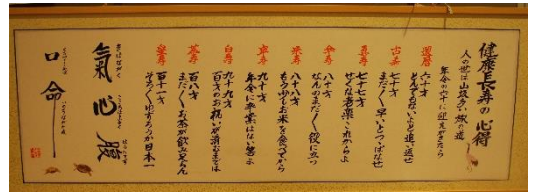 健康長寿の心得
人の世は山坂多い旅の道
年令の六十に迎えがきたら
還暦
六十才
とんでもないよと追い返せ
古希
七十才
まだまだ早いとつっぱなせ
喜寿
七十七才
せくな老楽これからよ
傘寿
八十才
なんのまだまだ役に立つ
米寿
八十八才
もう少しお米を食べてから
卒寿
九十才
年令に卒業はない筈よ
白寿
九十九才
百才のお祝いが済むまでは
茶寿
百八才
まだまだお茶が飲み足らん
皇寿
百十一才
そろそろゆずろうか日本一
氣
心
腹
口
命